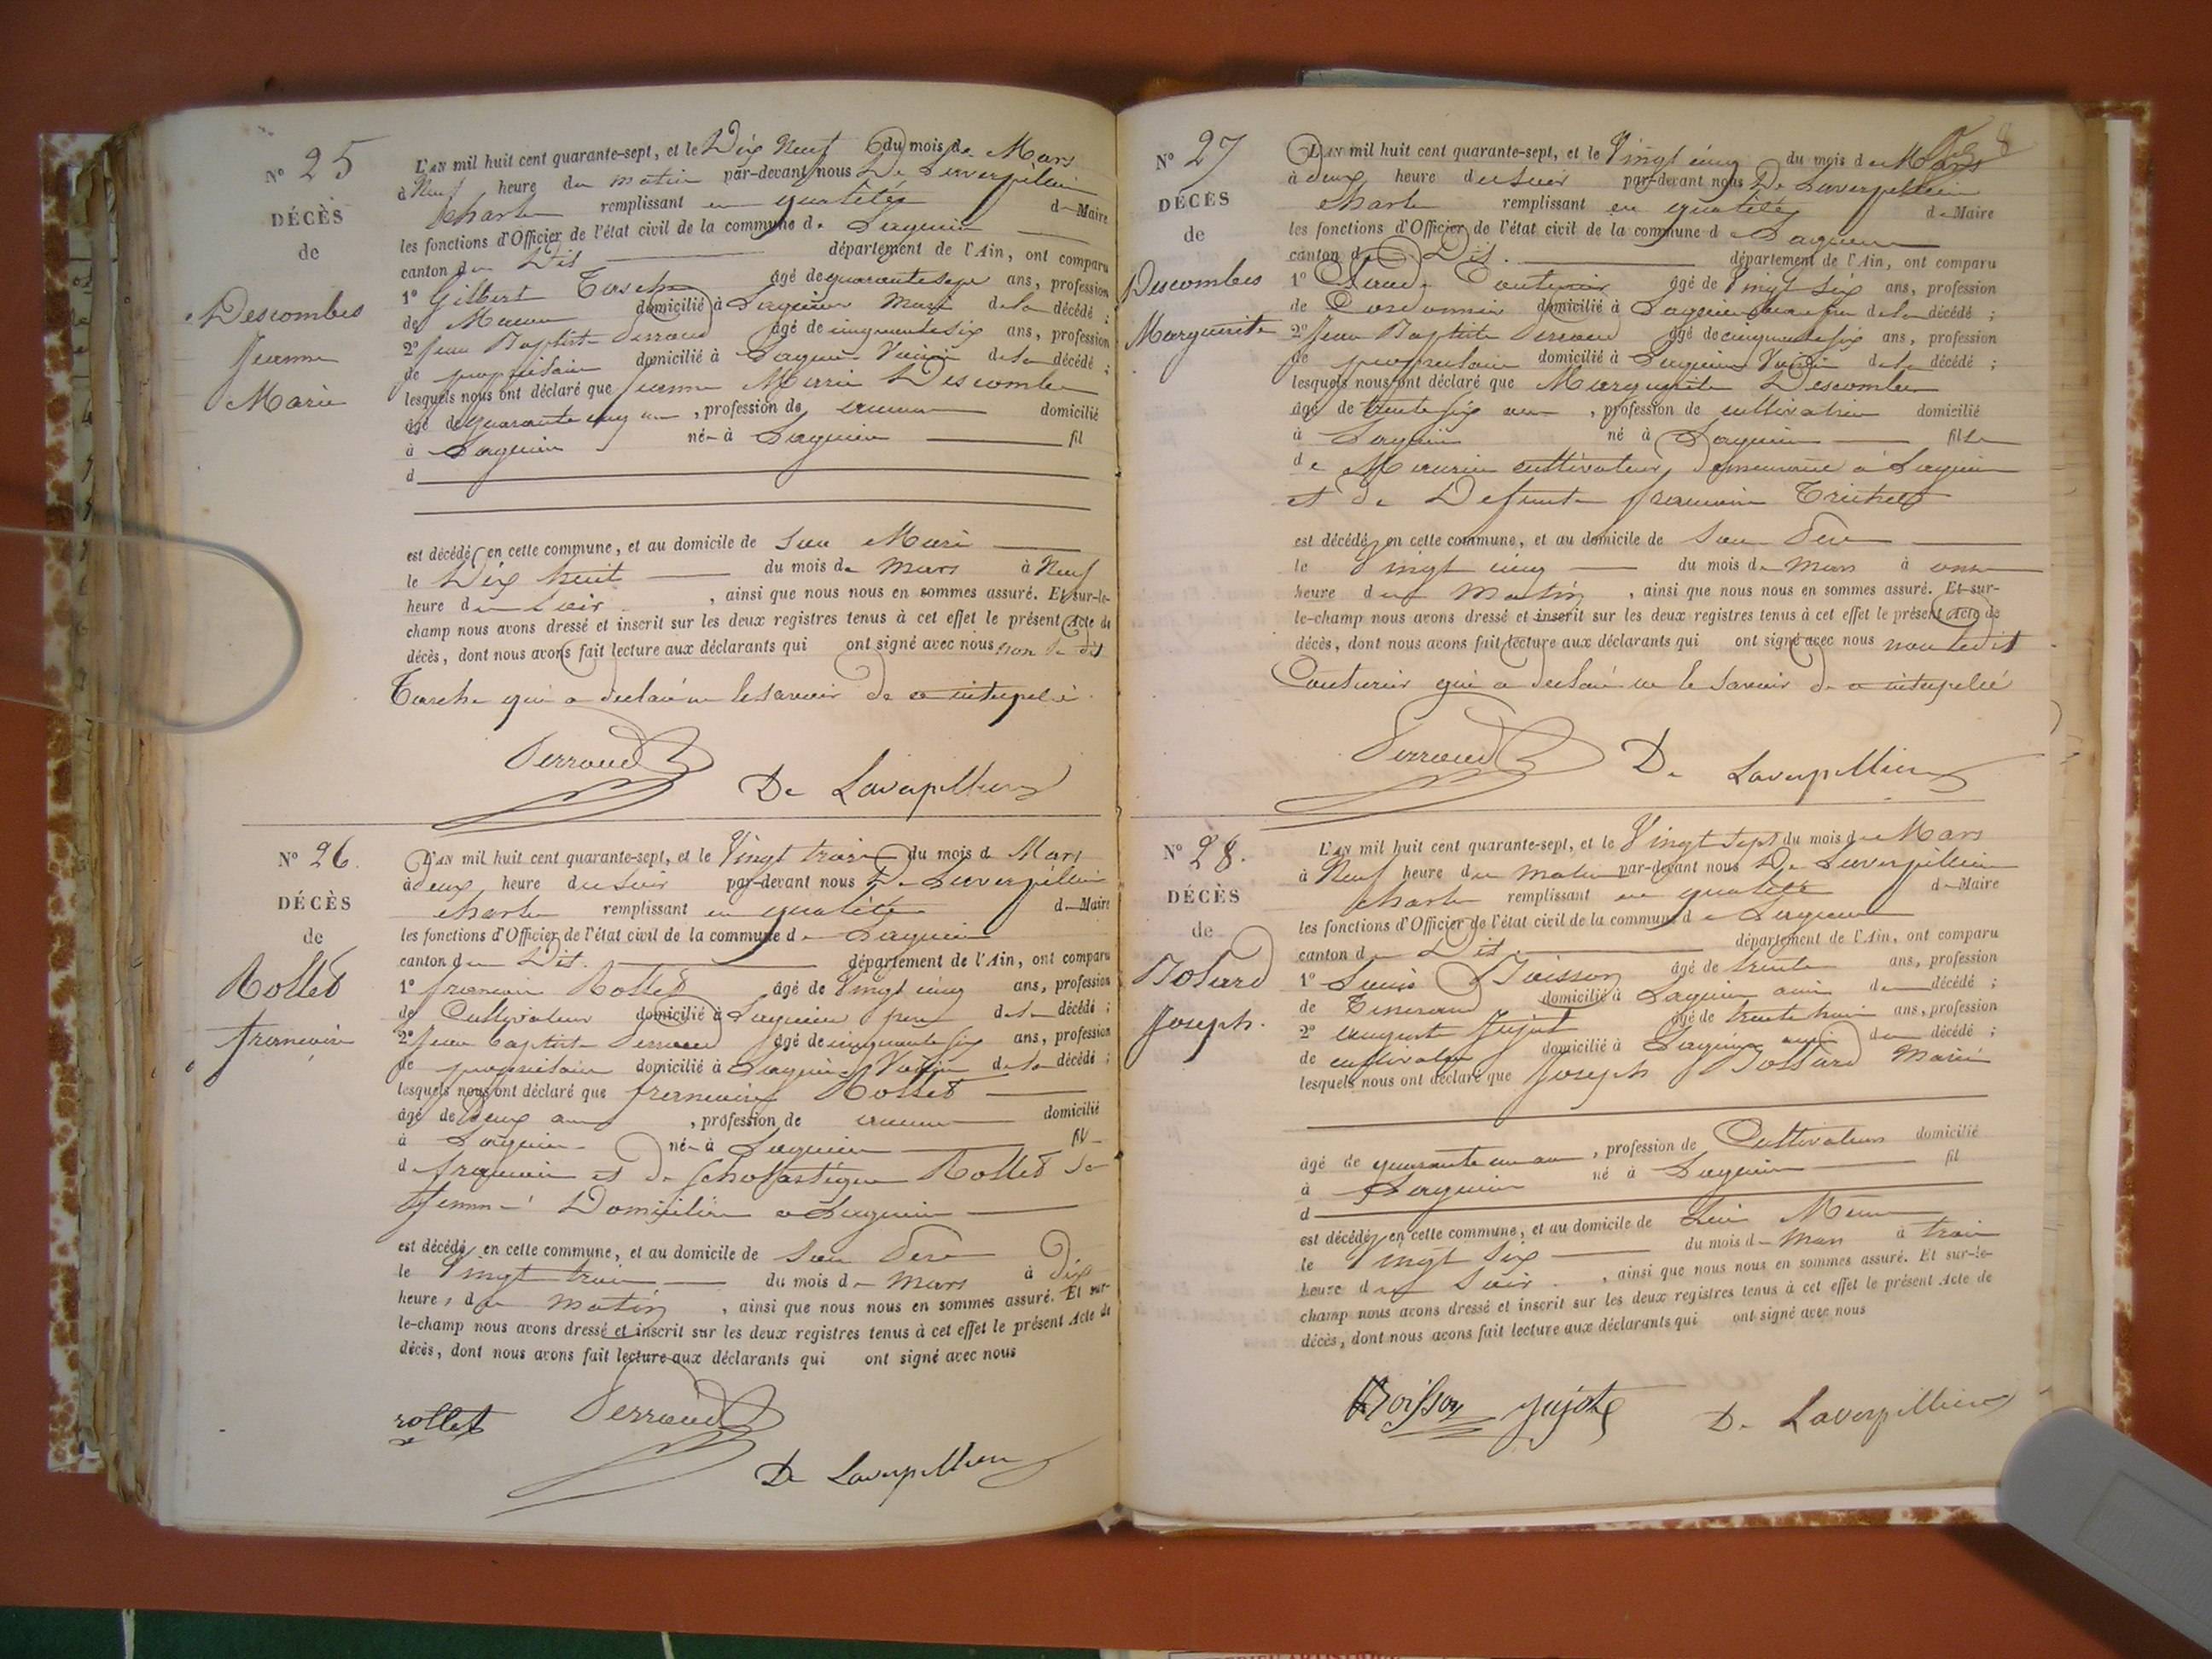 N° 25
DÉCÈS
de
Descombes
Jeanne
Marie
L'AN mil huit cent quarante-sept, et le Dix Neuf du mois de Mars
à Neuf heure du matin par-devant nous De Laverpillière
Charle remplissant en qualité de Maire
les fonctions d'Officier de l'état civil de la commune de Lagnieu
canton du Dit département de l'Ain, ont comparu
1° Gilbert âgé de quarante sept ans, profession
de Macon domicilié à Lagnieu Mari de la décédé ;
2° Jean Baptiste Perraud âgé de cinquante six ans, profession
de propriétaire domicilié à Lagnieu Voisin de la décédé ;
lesquels nous ont déclaré que Jeanne Marie Descombe
âgé de quarante cinq an , profession de aucune domicilié
à Lagnieu né à Lagnieu fil
d
est décédé en cette commune, et au domicile de Son Mari
le Dix huit du mois de Mars à Neuf
heure du Soir , ainsi que nous nous en sommes assuré. Et sur-le-
champ nous avons dressé et inscrit sur les deux registres tenus à cet effet le présent Acte de
décès, dont nous avons fait lecture aux déclarants qui ont signé avec nous non le dit
qui a declaré ne le savoir de ce interpelé
Perraud
De Laverpilliere
N° 26.
DÉCÈS
de
Rollet
francoise
L'AN mil huit cent quarante-sept, et le Vingt trois du mois d Mars
à deux heure du Soir par-devant nous De Laverpillière
Charle remplissant en qualité de Maire
les fonctions d'Officier de l'état civil de la commune de Lagnieu
canton du Dit. département de l'Ain, ont comparu
1° francois Rollet âgé de Vingt cinq ans, profession
de Cultivateur domicilié à Lagnieu pere de la décédé ;
2° Jean Baptiste Perraud âgé de cinquante six ans, profession
de propriétaire domicilié à Lagnieu Voisin de la décédé ;
lesquels nous ont déclaré que francoise Rollet
âgé de Deux ans , profession de aucune domicilié
à Lagnieu né à Lagnieu fil
de francois et de Scholastique Rollet Sa
femme Domicilié a Lagnieu
est décédé en cette commune, et au domicile de Son Pere
le Vingt trois du mois de Mars à Dix
heure, du Matin , ainsi que nous nous en sommes assuré. Et sur-
le-champ nous avons dressé et inscrit sur les deux registres tenus à cet effet le présent Acte de
décès, dont nous avons fait lecture aux déclarants qui ont signé avec nous
rollet Perraud
De Laverpilliere
N° 27
DÉCÈS
de
Descombes
Marguerite
L'AN mil huit cent quarante-sept, et le Vingt cinq du mois de Mars
à deux heure du Soir par-devant nous De Laverpillière
Charle remplissant en qualité de Maire
les fonctions d'Officier de l'état civil de la commune de Lagnieu
canton du Dit. département de l'Ain, ont comparu
1° Claude Couturier âgé de Vingt Six ans, profession
de Cordonnier domicilié à Lagnieu de la décédé ;
2° Jean Baptiste Perraud âgé de cinquante six ans, profession
de propriétaire domicilié à Lagnieu Voisin de la décédé ;
lesquels nous ont déclaré que Marguerite Descombe
âgé de trente six ans , profession de cultivatrice domicilié
à Lagnieu né à Lagnieu fille
de cultivateur, demeurant à Lagnieu
et de Defunte francoise Trichet
est décédé en cette commune, et au domicile de Son Pere
le Vingt cinq du mois de Mars à onze
heure du Matin , ainsi que nous nous en sommes assuré. Et sur-
le-champ nous avons dressé et inscrit sur les deux registres tenus à cet effet le présent Acte de
décès, dont nous avons fait lecture aux déclarants qui ont signé avec nous non ledit
Couturier qui a declaré ne le Savoir de ce interpelé
Perraud De Laverpilliere
N° 28.
DÉCÈS
de
Joseph.
L'AN mil huit cent quarante-sept, et le Vingt Sept du mois de Mars
à Neuf heure du Matin par-devant nous De Laverpillière
Charle remplissant en qualité de Maire
les fonctions d'Officier de l'état civil de la commune de Lagnieu
canton du Dit département de l'Ain, ont comparu
1° Louis Boisson âgé de trente ans, profession
de Tisserand domicilié à Lagnieu ami du décédé ;
2° auguste Jujat âgé de trente trois ans, profession
de cultivateur domicilié à Lagnieu ami du décédé ;
lesquels nous ont déclaré que Joseph Marié
âgé de quarante un an , profession de Cultivateur domicilié
à Lagnieu né à Lagnieu fil
d
est décédé en cette commune, et au domicile de Lui Même
le Vingt Six du mois de Mars à trois
heure du Soir. , ainsi que nous nous en sommes assuré. Et sur-le-
champ nous avons dressé et inscrit sur les deux registres tenus à cet effet le présent Acte de
décès, dont nous avons fait lecture aux déclarants qui ont signé avec nous
Boisson De Laverpilliere